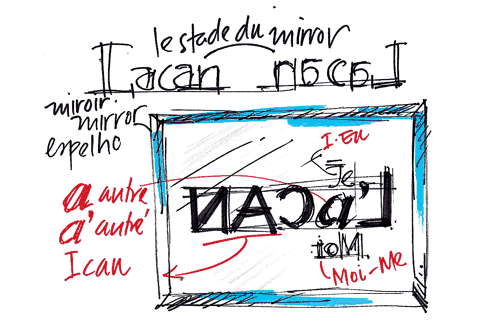 le stade du mirror
Lacan nacaL
miroir.
mirror
espelho
I. Eu
Je
a autre
a' autré
L'aCAN
Ican
Moi.
Moi-Me